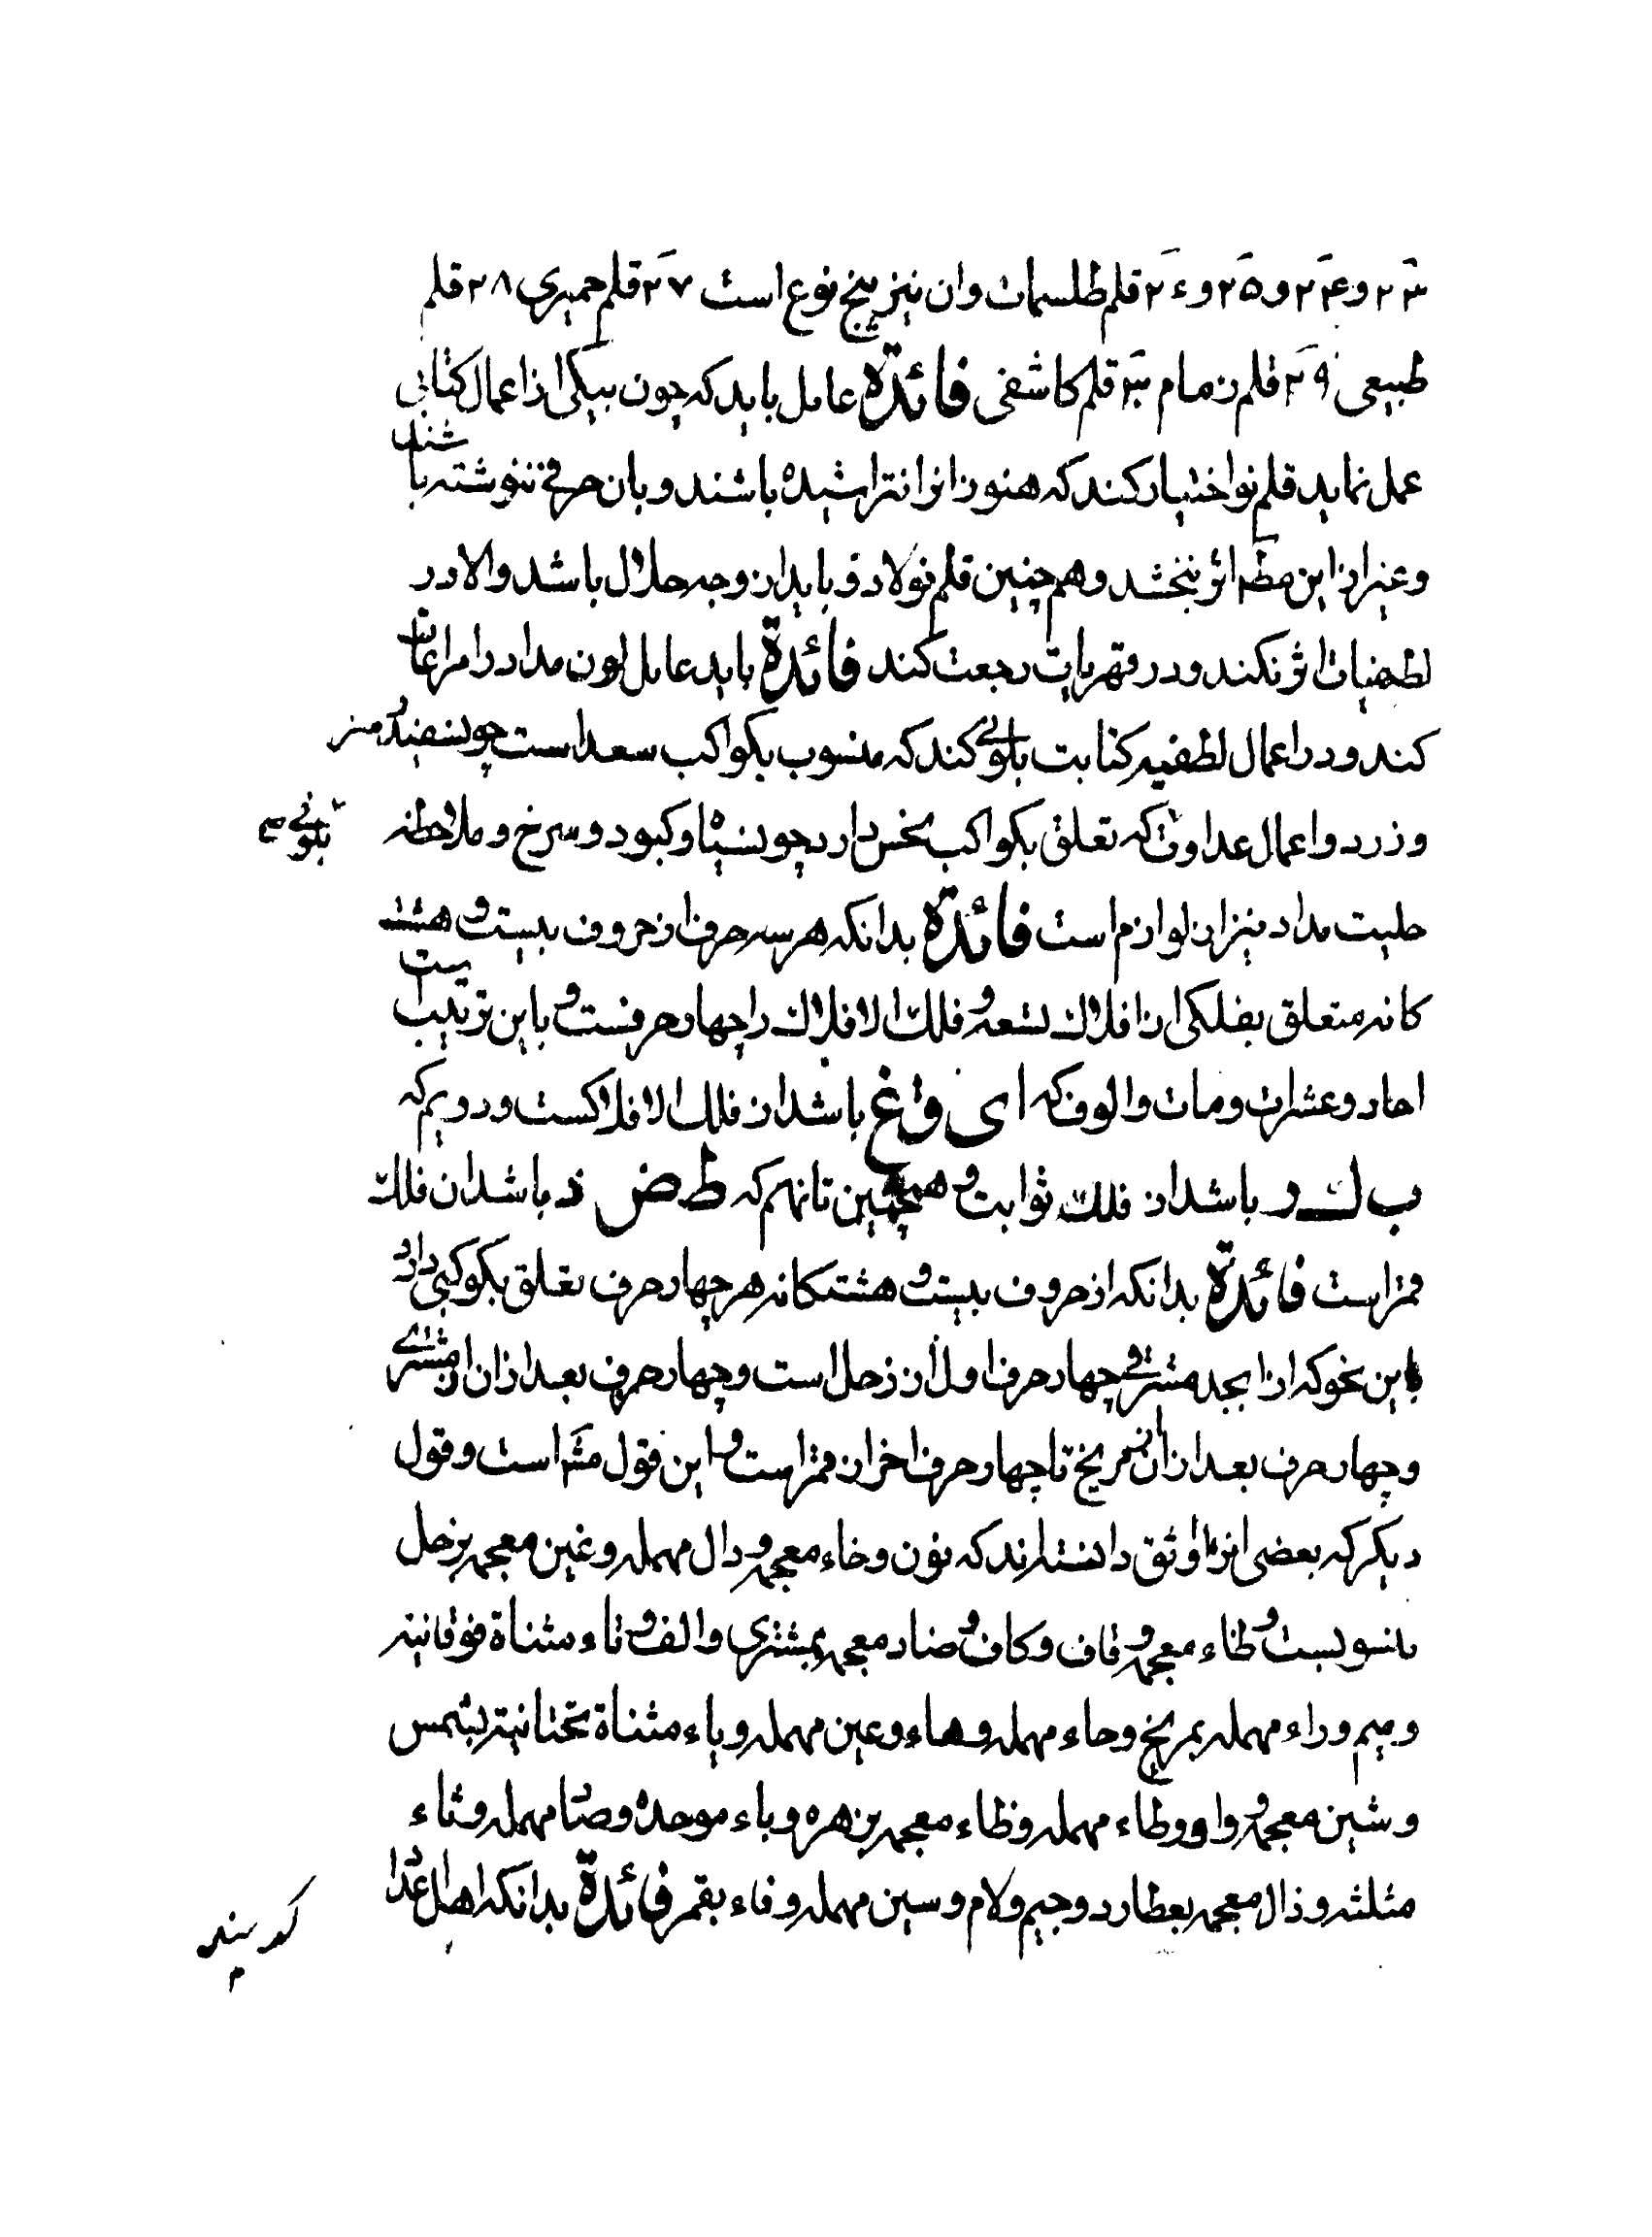 ۲۳ و ۲۴ و ۲۵ و ۲۶ قلم طلسمات وان نیز پنج نوع است ۲۷ قلم حمیری ۲۸ قلم
طبیعی ۲۹ قلم زمام ۳۰ قلم کاشفی فائدة عامل باید که چون بیکی از اعمال کتابی
عمل نماید قلم نو اختیار کند که هنوز انرا نتراشیده باشند و بان حرفی ننوشته باشند
و غیر از این اثر نبخشد و هم چنین قلم فولاد و باید از وجه حلال باشد والا در
لطفیات اثر نکند و در قهریات رجعت کند فائدة باید عامل لون مداد را مراعات
کند و در اعمال لطفیه کتابت بلونی کند که منسوب بکواکب سعد است چون سفید و سبز
و زرد و اعمال عداوت که تعلق بکواکب نحس دارد چون سیاه و کبود و سرخ و ملاحظه
بلونی
حلیت مداد نیز از لوازم است فائدة بدانکه هر سه حرف از حروف بیست و هشت
کانه متعلق بفلکی از افلاک تسعه و فلک الافلاک را چهار حرفست و باین ترتیب است
احاد و عشرات و مات و الوف که ا ی ق غ باشد از فلک الافلاکست و دویم که
ب ک ر باشد از فلک ثوابت و همچنین تا نهم که ط ض ذ باشد از فلک
قمر است فائدة بدانکه از حروف بیست و هشتکانه هر چهار حرف تعلق بکوکبی دارد
باین نحو که از ابجد مشرقی چهار حرف اول از زحل است و چهار حرف بعد از ان از مشتری
و چهار حرف بعد از ان از مریخ تا چهار حرف اخر از قمر است و این قول است و قول
دیکر که بعضی انرا اوثق دانسته‌اند که نون و خاء معجمه و دال مهمله و غین معجمه بزحل
منسوبست و ظاء معجمه و قاف و کاف و ضاد معجمه بمشتری و الف و تاء مثناة فوقانیه
و میم و راء مهمله بمریخ و حاء مهمله و هاء و عین مهمله و یاء مثناة تحتانیه بشمس
و شین معجمه و واو و طاء مهمله و ظاء معجمه بزهره و باء موحده و صاد مهمله و ثاء
مثلثه و ذال معجمه بعطارد و جیم و لام و سین مهمله و فاء بقمر فائدة بدانکه اهل عدد